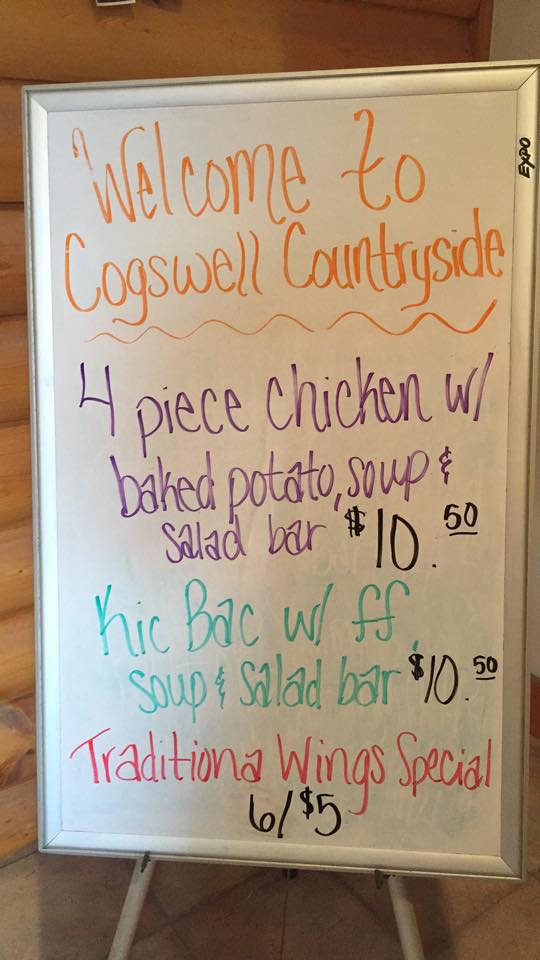 Welcome to
Cogswell Countryside
4 piece chicken w/
baked potato, soup &
salad bar $10.50
Kic Bac w/ ff,
soup & salad bar $10.50
Traditiona Wings Special
6/$5
EXPO